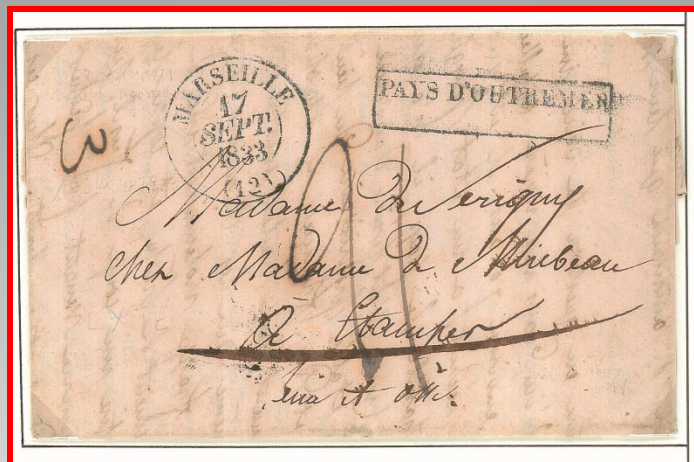 MARSEILLE
17
SEPT.
1833
(12)
PAYS D'OUTREMER
3
Madame de Serigny
chez Madame de Mirebeau
à Etampes
Seine et Oise.